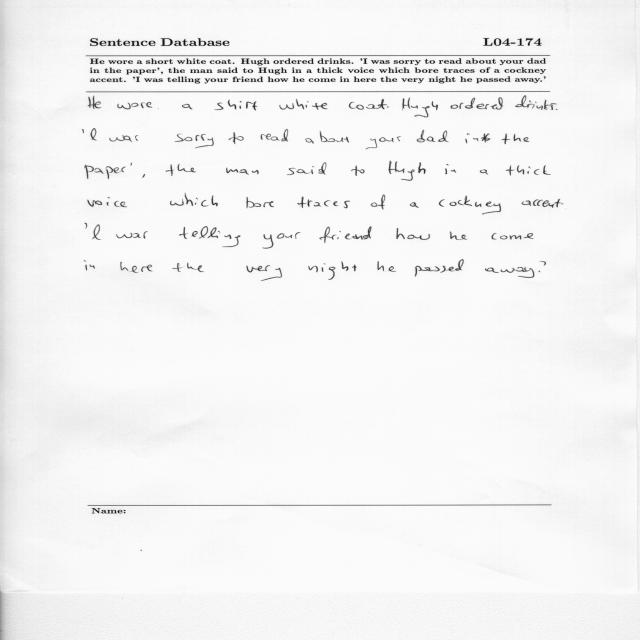 Sentence Database L04-174
He wore a short white coat. Hugh ordered drinks. 'I was sorry to read about your dad
in the paper', the man said to Hugh in a thick voice which bore traces of a cockney
accent. 'I was telling your friend how he come in here the very night he passed away.'
He wore a shirt white coat. Hugh ordered drinks.
'I was sorry to read about your dad in the
paper', the man said to Hugh in a thick
voice which bore traces of a cockney accent.
'I was telling your friend how he come
in here the very night he passed away.'
Name: